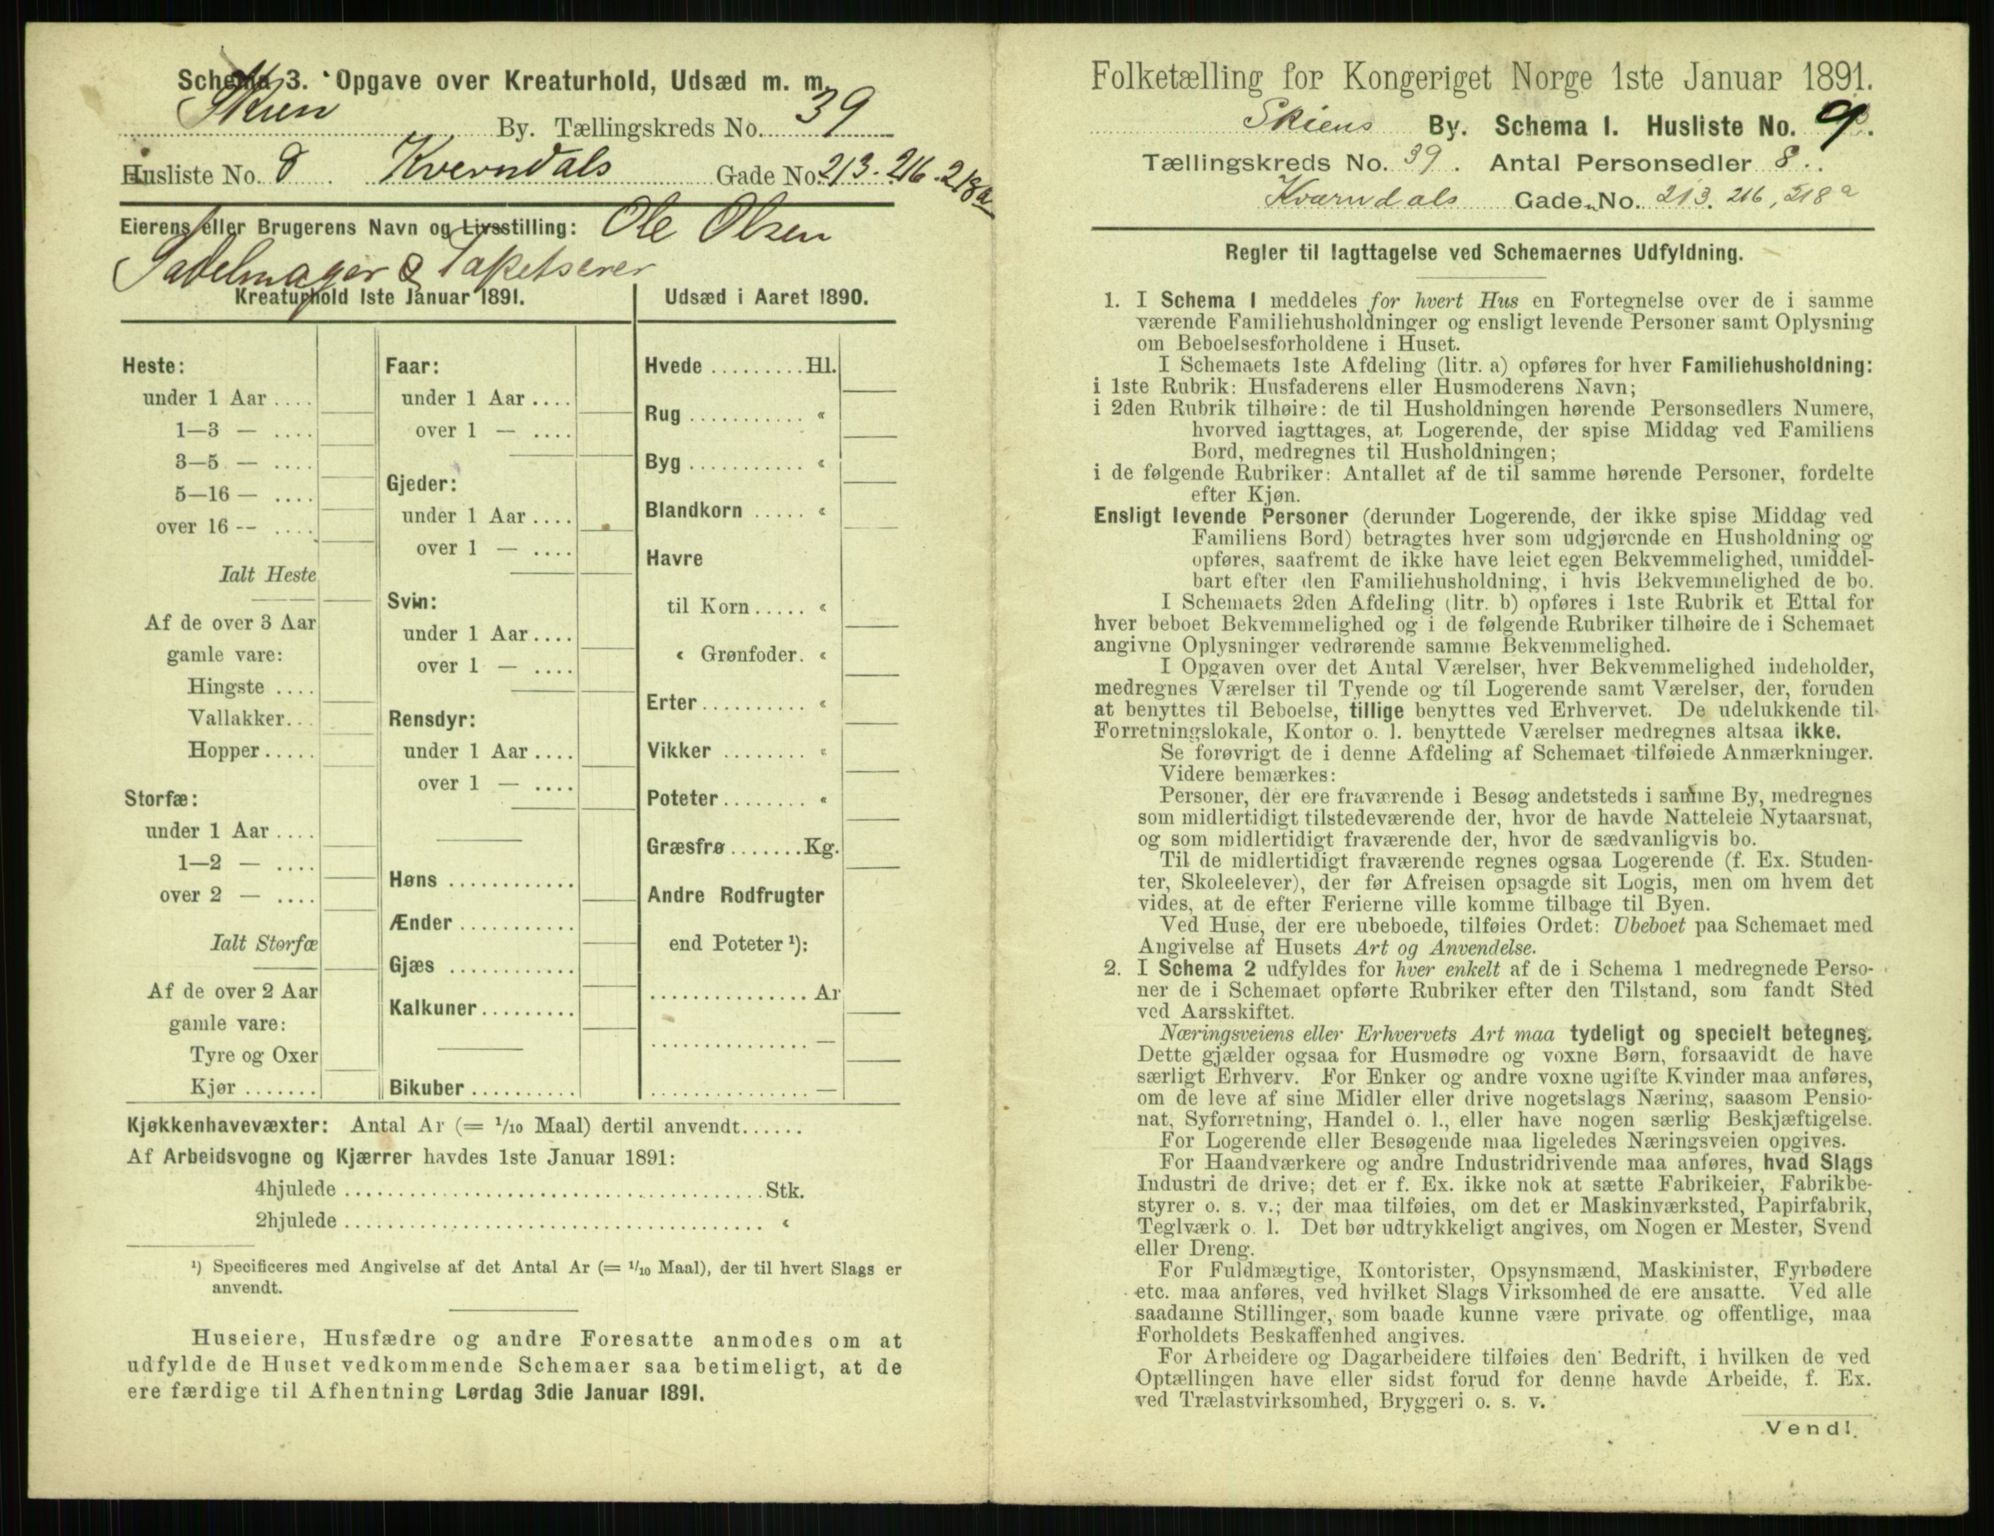 Schema 3. Opgave over Kreaturhold, Udsæd m. m.
Skien By. Tællingskreds No. 39
Husliste No. 8 Kverndals Gade No. 213. 216. 218a
Eierens eller Brugerens Navn og Livsstilling: Ole Olsen
Sadelmager & Tapetserer
Kreaturhold 1ste Januar 1891.
Heste:
under 1 Aar ....
1—3 — ....
3—5 — ....
5—16 — ....
over 16 -- ....
Ialt Heste
Af de over 3 Aar
gamle vare:
Hingste ....
Vallakker...
Hopper.....
Storfæ:
under 1 Aar ....
1—2 — ....
over 2 — ....
Ialt Storfæ
Af de over 2 Aar
gamle vare:
Tyre og Oxer
Kjør .......
Faar:
under 1 Aar ....
over 1 — ....
Gjeder:
under 1 Aar ....
over 1 — ....
Svin:
under 1 Aar ....
over 1 — ....
Rensdyr:
under 1 Aar ....
over 1 — ....
Høns ............
Ænder ...........
Gjæs ............
Kalkuner.........
Bikuber ..........
Udsæd i Aaret 1890.
Hvede .........Hl.
Rug ........... «
Byg ........... «
Blandkorn ..... «
Havre
til Korn ..... «
« Grønfoder. «
Erter.......... «
Vikker ........ «
Poteter ........ «
Græsfrø .......Kg.
Andre Rodfrugter
end Poteter ¹):
............... Ar
............... —
............... —
Kjøkkenhavevæxter: Antal Ar (= 1/10 Maal) dertil anvendt......
Af Arbeidsvogne og Kjærrer havdes 1ste Januar 1891:
4hjulede ........................................Stk.
2hjulede ........................................ «
¹) Specificeres med Angivelse af det Antal Ar (= 1/10 Maal), der til hvert Slags er
anvendt.
Huseiere, Husfædre og andre Foresatte anmodes om at
udfylde de Huset vedkommende Schemaer saa betimeligt, at de
ere færdige til Afhentning Lørdag 3die Januar 1891.
Folketælling for Kongeriget Norge 1ste Januar 1891.
Skiens By. Schema 1. Husliste No. 9.
Tællingskreds No. 39. Antal Personsedler 8.
Kværndals Gade No. 213. 216, 218a
Regler til Iagttagelse ved Schemaernes Udfyldning.
1. I Schema 1 meddeles for hvert Hus en Fortegnelse over de i samme
værende Familiehusholdninger og ensligt levende Personer samt Oplysning
om Beboelsesforholdene i Huset.
I Schemaets 1ste Afdeling (litr. a) opføres for hver Familiehusholdning:
i 1ste Rubrik: Husfaderens eller Husmoderens Navn;
i 2den Rubrik tilhøire: de til Husholdningen hørende Personsedlers Numere,
hvorved iagttages, at Logerende, der spise Middag ved Familiens
Bord, medregnes til Husholdningen;
i de følgende Rubriker: Antallet af de til samme hørende Personer, fordelte
efter Kjøn.
Ensligt levende Personer (derunder Logerende, der ikke spise Middag ved
Familiens Bord) betragtes hver som udgjørende en Husholdning og
opføres, saafremt de ikke have leiet egen Bekvemmelighed, umiddel-
bart efter den Familiehusholdning, i hvis Bekvemmelighed de bo.
I Schemaets 2den Afdeling (litr. b) opføres i 1ste Rubrik et Ettal for
hver beboet Bekvemmelighed og i de følgende Rubriker tilhøire de i Schemaet
angivne Oplysninger vedrørende samme Bekvemmelighed.
I Opgaven over det Antal Værelser, hver Bekvemmelighed indeholder,
medregnes Værelser til Tyende og til Logerende samt Værelser, der, foruden
at benyttes til Beboelse, tillige benyttes ved Erhvervet. De udelukkende til
Forretningslokale, Kontor o. l. benyttede Værelser medregnes altsaa ikke.
Se forøvrigt de i denne Afdeling af Schemaet tilføiede Anmærkninger.
Videre bemærkes:
Personer, der ere fraværende i Besøg andetsteds i samme By, medregnes
som midlertidigt tilstedeværende der, hvor de havde Natteleie Nytaarsnat,
og som midlertidigt fraværende der, hvor de sædvanligvis bo.
Til de midlertidigt fraværende regnes ogsaa Logerende (f. Ex. Studen-
ter, Skoleelever), der før Afreisen opsagde sit Logis, men om hvem det
vides, at de efter Ferierne ville komme tilbage til Byen.
Ved Huse, der ere ubeboede, tilføies Ordet: Ubeboet paa Schemaet med
Angivelse af Husets Art og Anvendelse.
2. I Schema 2 udfyldes for hver enkelt af de i Schema 1 medregnede Perso-
ner de i Schemaet opførte Rubriker efter den Tilstand, som fandt Sted
ved Aarsskiftet.
Næringsveiens eller Erhvervets Art maa tydeligt og specielt betegnes.
Dette gjælder ogsaa for Husmødre og voxne Børn, forsaavidt de have
særligt Erhverv. For Enker og andre voxne ugifte Kvinder maa anføres,
om de leve af sine Midler eller drive nogetslags Næring, saasom Pensio-
nat, Syforretning, Handel o. l., eller have nogen særlig Beskjæftigelse.
For Logerende eller Besøgende maa ligeledes Næringsveien opgives.
For Haandværkere og andre Industridrivende maa anføres, hvad Slags
Industri de drive; det er f. Ex. ikke nok at sætte Fabrikeier, Fabrikbe-
styrer o. s. v.; der maa tilføies, om det er Maskinværksted, Papirfabrik,
Teglværk o. l. Det bør udtrykkeligt angives, om Nogen er Mester, Svend
eller Dreng.
For Fuldmægtige, Kontorister, Opsynsmænd, Maskinister, Fyrbødere
etc. maa anføres, ved hvilket Slags Virksomhed de ere ansatte. Ved alle
saadanne Stillinger, som baade kunne være private og offentlige, maa
Forholdets Beskaffenhed angives.
For Arbeidere og Dagarbeidere tilføies den Bedrift, i hvilken de ved
Optællingen have eller sidst forud for denne havde Arbeide, f. Ex.
ved Trælastvirksomhed, Bryggeri o. s. v.
Vend!